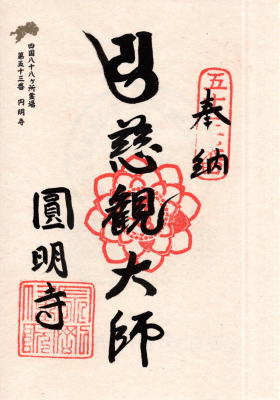 奉納
慈観大師
圓明寺
四国八十八ヶ所霊場
第五十三番 円明寺